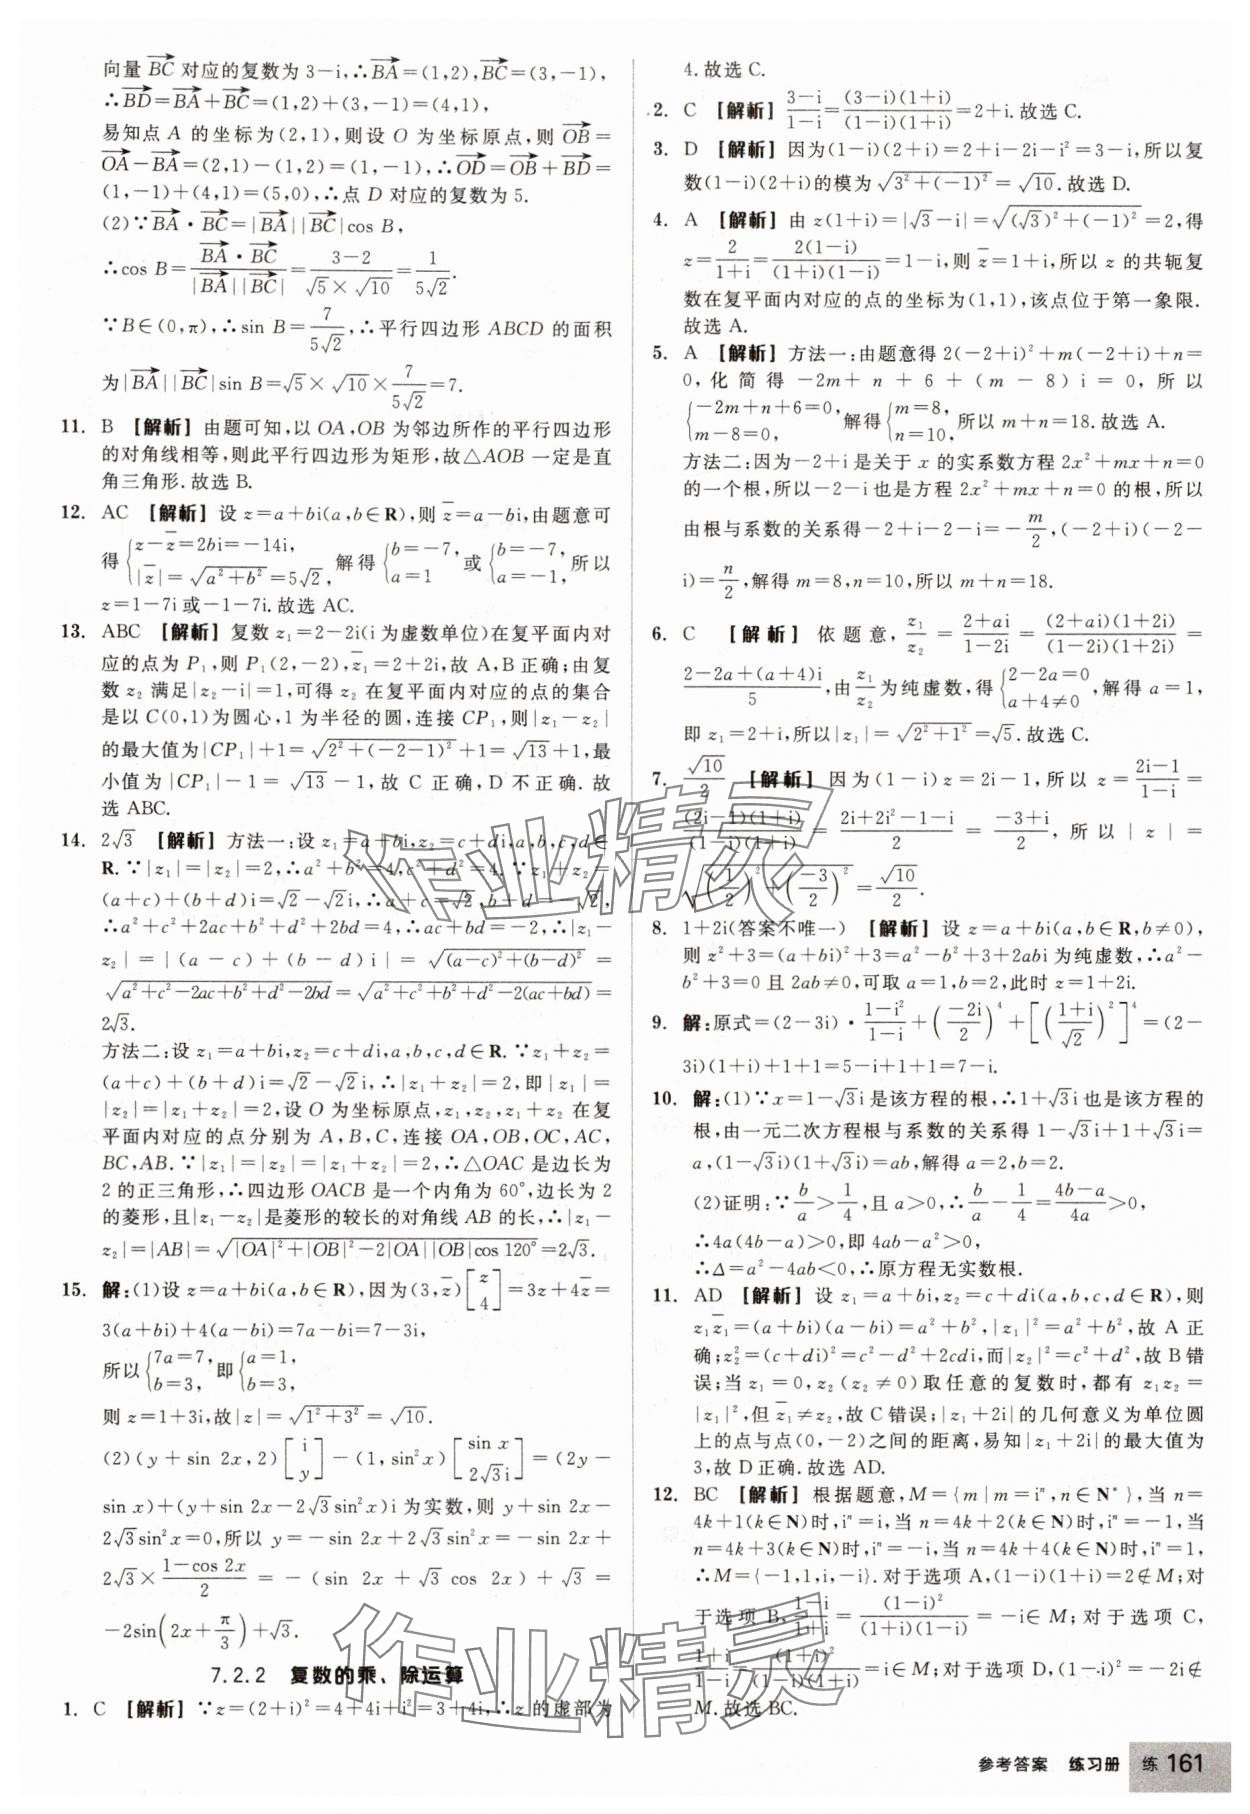 向量$\overrightarrow{BC}$对应的复数为 3-i,∴$\overrightarrow{BA}$=(1,2),$\overrightarrow{BC}$=(3,-1),
∴$\overrightarrow{BD}$=$\overrightarrow{BA}$+$\overrightarrow{BC}$=(1,2)+(3,-1)=(4,1),
易知点 A 的坐标为(2,1),则设 O 为坐标原点,则 $\overrightarrow{OB}$=
$\overrightarrow{OA}$-$\overrightarrow{BA}$=(2,1)-(1,2)=(1,-1),∴$\overrightarrow{OD}$=$\overrightarrow{OB}$+$\overrightarrow{BD}$=
(1,-1)+(4,1)=(5,0),∴点 D 对应的复数为 5.
(2)∵$\overrightarrow{BA}$·$\overrightarrow{BC}$=|$\overrightarrow{BA}$||$\overrightarrow{BC}$|cos B,
∴cos B=$\frac{\overrightarrow{BA}·\overrightarrow{BC}}{|\overrightarrow{BA}||\overrightarrow{BC}|}$=$\frac{3-2}{\sqrt{5}×\sqrt{10}}$=$\frac{1}{5\sqrt{2}}$.
∵B∈(0,π),∴sin B=$\frac{7}{5\sqrt{2}}$,∴平行四边形 ABCD 的面积
为|$\overrightarrow{BA}$||$\overrightarrow{BC}$|sin B=$\sqrt{5}$×$\sqrt{10}$×$\frac{7}{5\sqrt{2}}$=7.
11. B 【解析】由题可知,以 OA,OB 为邻边所作的平行四边形
的对角线相等,则此平行四边形为矩形,故△AOB 一定是直
角三角形.故选 B.
12. AC 【解析】设 z=a+bi(a,b∈R),则$\overline{z}$=a-bi,由题意可
得$\begin{cases}z-\overline{z}=2bi=-14i,\\|\overline{z}|=\sqrt{a^2+b^2}=5\sqrt{2},\end{cases}$解得$\begin{cases}b=-7,\\a=1\end{cases}$或$\begin{cases}b=-7,\\a=-1,\end{cases}$所以
z=1-7i 或-1-7i.故选 AC.
13. ABC 【解析】复数 z₁=2-2i(i 为虚数单位)在复平面内对
应的点为 P₁,则 P₁(2,-2),$\overline{z}_1$=2+2i,故 A,B 正确;由复
数 z₂ 满足|z₂-i|=1,可得 z₂ 在复平面内对应的点的集合
是以 C(0,1)为圆心,1 为半径的圆,连接 CP₁,则|z₁-z₂|
的最大值为|CP₁|+1=$\sqrt{2^2+(-2-1)^2}$+1=$\sqrt{13}$+1,最
小值为|CP₁|-1=$\sqrt{13}$-1,故 C 正确,D 不正确.故
选 ABC.
14. 2$\sqrt{3}$ 【解析】方法一:设 z₁=a+bi,z₂=c+di,a,b,c,d∈
R.∵|z₁|=|z₂|=2,∴a²+b²=4,c²+d²=4.∵z₁+z₂=
(a+c)+(b+d)i=$\sqrt{2}$-$\sqrt{2}$i,∴a+c=$\sqrt{2}$,b+d=-$\sqrt{2}$,
∴a²+c²+2ac+b²+d²+2bd=4,∴ac+bd=-2,∴|z₁-
z₂|=|(a-c)+(b-d)i|=$\sqrt{(a-c)^2+(b-d)^2}$=
$\sqrt{a^2+c^2-2ac+b^2+d^2-2bd}$=$\sqrt{a^2+c^2+b^2+d^2-2(ac+bd)}$=
2$\sqrt{3}$.
方法二:设 z₁=a+bi,z₂=c+di,a,b,c,d∈R.∵z₁+z₂=
(a+c)+(b+d)i=$\sqrt{2}$-$\sqrt{2}$i,∴|z₁+z₂|=2,即|z₁|=
|z₂|=|z₁+z₂|=2,设 O 为坐标原点,z₁,z₂,z₁+z₂ 在复
平面内对应的点分别为 A,B,C,连接 OA,OB,OC,AC,
BC,AB.∵|z₁|=|z₂|=|z₁+z₂|=2,∴△OAC 是边长为
2 的正三角形,∴四边形 OACB 是一个内角为 60°,边长为 2
的菱形,且|z₁-z₂|是菱形的较长的对角线 AB 的长,∴|z₁-
z₂|=|AB|=$\sqrt{|OA|^2+|OB|^2-2|OA||OB|\cos 120°}$=2$\sqrt{3}$.
15. 解:(1)设 z=a+bi(a,b∈R),因为(3,$\overline{z}$)$\begin{bmatrix}z\\4\end{bmatrix}$=3z+4$\overline{z}$=
3(a+bi)+4(a-bi)=7a-bi=7-3i,
所以$\begin{cases}7a=7,\\b=3,\end{cases}$即$\begin{cases}a=1,\\b=3,\end{cases}$
则 z=1+3i,故|z|=$\sqrt{1^2+3^2}$=$\sqrt{10}$.
(2)(y+sin 2x,2)$\begin{bmatrix}i\\y\end{bmatrix}$-(1,sin²x)$\begin{bmatrix}\sin x\\2\sqrt{3}i\end{bmatrix}$=(2y-
sin x)+(y+sin 2x-2$\sqrt{3}$sin²x)i 为实数,则 y+sin 2x-
2$\sqrt{3}$sin²x=0,所以 y=-sin 2x+2$\sqrt{3}$sin²x=-sin 2x+
2$\sqrt{3}$×$\frac{1-\cos 2x}{2}$=-(sin 2x+$\sqrt{3}$cos 2x)+$\sqrt{3}$=
-2sin(2x+$\frac{π}{3}$)+$\sqrt{3}$.
7.2.2 复数的乘、除运算
1. C 【解析】∵z=(2+i)²=4+4i+i²=3+4i,∴z 的虚部为
4.故选 C.
2. C 【解析】$\frac{3-i}{1-i}$=$\frac{(3-i)(1+i)}{(1-i)(1+i)}$=2+i.故选 C.
3. D 【解析】因为(1-i)(2+i)=2+i-2i-i²=3-i,所以复
数(1-i)(2+i)的模为$\sqrt{3^2+(-1)^2}$=$\sqrt{10}$.故选 D.
4. A 【解析】由 z(1+i)=|$\sqrt{3}$-i|=$\sqrt{(\sqrt{3})^2+(-1)^2}$=2,得
z=$\frac{2}{1+i}$=$\frac{2(1-i)}{(1+i)(1-i)}$=1-i,则$\overline{z}$=1+i,所以 z 的共轭复
数在复平面内对应的点的坐标为(1,1),该点位于第一象限.
故选 A.
5. A 【解析】方法一:由题意得 2(-2+i)²+m(-2+i)+n=
0,化简得 -2m+n+6+(m-8)i=0,所以
$\begin{cases}-2m+n+6=0,\\m-8=0,\end{cases}$解得$\begin{cases}m=8,\\n=10,\end{cases}$所以 m+n=18.故选 A.
方法二:因为-2+i 是关于 x 的实系数方程 2x²+mx+n=0
的一个根,所以-2-i 也是方程 2x²+mx+n=0 的根,所以
由根与系数的关系得-2+i-2-i=-$\frac{m}{2}$,(-2+i)(-2-
i)=$\frac{n}{2}$,解得 m=8,n=10,所以 m+n=18.
6. C 【解析】依题意,$\frac{z_1}{z_2}$=$\frac{2+ai}{1-2i}$=$\frac{(2+ai)(1+2i)}{(1-2i)(1+2i)}$=
$\frac{2-2a+(a+4)i}{5}$,由$\frac{z_1}{z_2}$为纯虚数,得$\begin{cases}2-2a=0\\a+4≠0\end{cases}$,解得 a=1,
即 z₁=2+i,所以|z₁|=$\sqrt{2^2+1^2}$=$\sqrt{5}$.故选 C.
7. $\frac{\sqrt{10}}{2}$ 【解析】因为(1-i)z=2i-1,所以 z=$\frac{2i-1}{1-i}$=
$\frac{(2i-1)(1+i)}{(1-i)(1+i)}$=$\frac{2i+2i^2-1-i}{2}$=$\frac{-3+i}{2}$,所以|z|=
$\sqrt{(\frac{1}{2})^2+(\frac{-3}{2})^2}$=$\frac{\sqrt{10}}{2}$.
8. 1+2i(答案不唯一) 【解析】设 z=a+bi(a,b∈R,b≠0),
则 z²+3=(a+bi)²+3=a²-b²+3+2abi 为纯虚数,∴a²-
b²+3=0 且 2ab≠0,可取 a=1,b=2,此时 z=1+2i.
9. 解:原式=(2-3i)·$\frac{1-i^2}{1-i}$+$(\frac{-2i}{2})^4$+$[(\frac{1+i}{\sqrt{2}})^2]^4$=(2-
3i)(1+i)+1+1=5-i+1+1=7-i.
10. 解:(1)∵x=1-$\sqrt{3}$i 是该方程的根,∴1+$\sqrt{3}$i 也是该方程的
根,由一元二次方程根与系数的关系得 1-$\sqrt{3}$i+1+$\sqrt{3}$i=
a,(1-$\sqrt{3}$i)(1+$\sqrt{3}$i)=ab,解得 a=2,b=2.
(2)证明:∵$\frac{b}{a}$>$\frac{1}{4}$,且 a>0,∴$\frac{b}{a}$-$\frac{1}{4}$=$\frac{4b-a}{4a}$>0,
∴4a(4b-a)>0,即 4ab-a²>0,
∴Δ=a²-4ab<0,∴原方程无实数根.
11. AD 【解析】设 z₁=a+bi,z₂=c+di(a,b,c,d∈R),则
z₁$\overline{z}_1$=(a+bi)(a-bi)=a²+b²,|z₁|²=a²+b²,故 A 正
确;z₂²=(c+di)²=c²-d²+2cdi,而|z₂|²=c²+d²,故 B 错
误;当 z₁=0,z₂(z₂≠0)取任意的复数时,都有 z₁z₂=
|z₁|²,但$\overline{z}_1$≠z₂,故 C 错误;|z₁+2i|的几何意义为单位圆
上的点与点(0,-2)之间的距离,易知|z₁+2i|的最大值为
3,故 D 正确.故选 AD.
12. BC 【解析】根据题意,M={m|m=iⁿ,n∈N*},当 n=
4k+1(k∈N)时,iⁿ=i,当 n=4k+2(k∈N)时,iⁿ=-1,当
n=4k+3(k∈N)时,iⁿ=-i,当 n=4k+4(k∈N)时,iⁿ=1,
∴M={-1,1,i,-i}.对于选项 A,(1-i)(1+i)=2∉M;对
于选项 B,$\frac{1-i}{1+i}$=$\frac{(1-i)^2}{(1+i)(1-i)}$=-i∈M;对于选项 C,
$\frac{1+i}{1-i}$=$\frac{(1+i)^2}{(1-i)(1+i)}$=i∈M;对于选项 D,(1-i)²=-2i∉
M.故选 BC.
参考答案 练习册 练 161
作业精灵
作业精灵